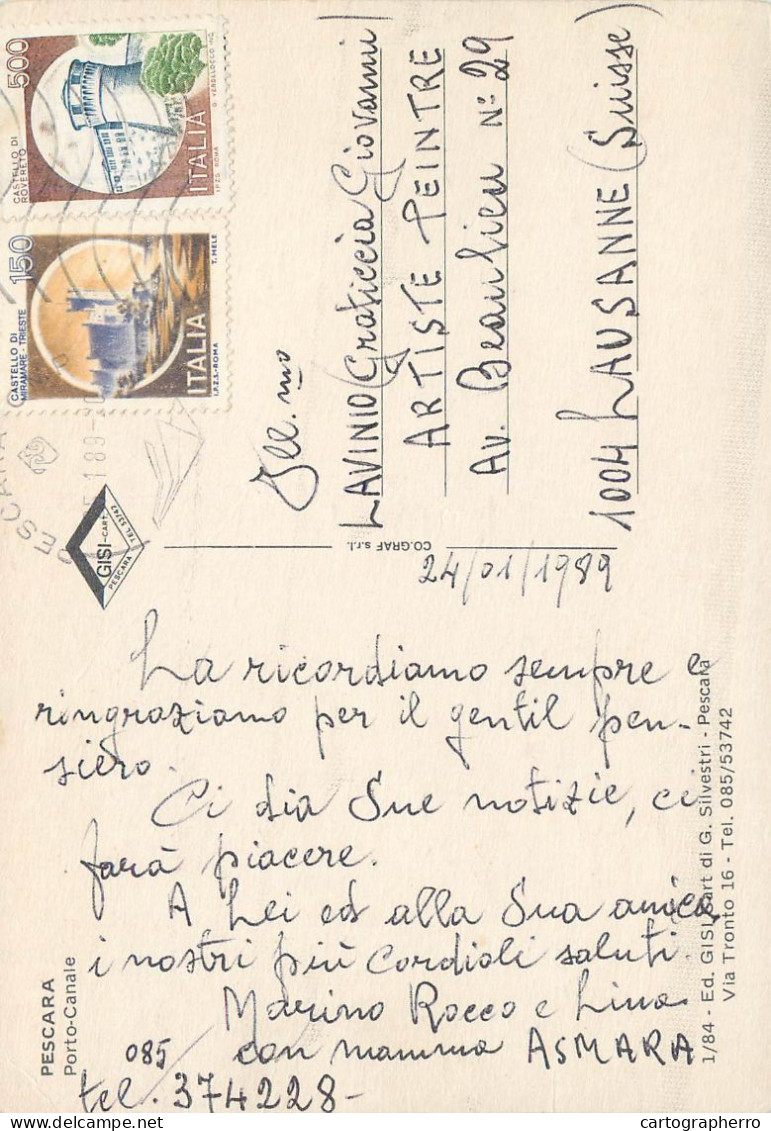 500
CASTELLO DI
ROVERETO
ITALIA
G. VERDELOCCO INC.
I.P.Z.S. ROMA
150
CASTELLO DI
MIRAMARE - TRIESTE
ITALIA
T. MELE
I.P.Z.S. - ROMA
PESCARA
GISI-CART
PESCARA
TEL. 53742
CO.GRAF s.r.l.
Ill.mo
LAVINIO (Graticcia Giovanni)
ARTISTE PEINTRE
Av. Beaulieu N° 29
1004 LAUSANNE (Suisse)
24/01/1989
La ricordiamo sempre e
ringraziamo per il gentil pen-
siero.
Ci dia Sue notizie, ci
farà piacere.
A Lei ed alla Sua amica
i nostri più cordiali saluti.
Marino Rocco e Lina
con mamma ASMARA
085
tel. 374228-
PESCARA
Porto-Canale
1/84 - Ed. GISI Cart di G. Silvestri - Pescara
Via Tronto 16 - Tel. 085/53742
cartographerro